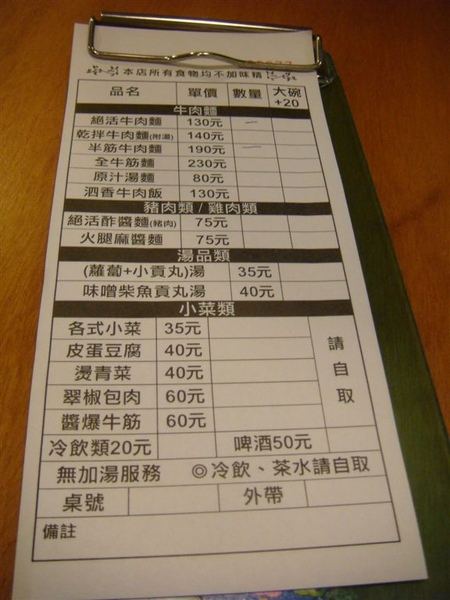 本店所有食物均不加味精
品名 單價 數量 大碗+20
牛肉麵
絕活牛肉麵 130元 一
乾拌牛肉麵(附湯) 140元
半筋牛肉麵 190元 一
全牛筋麵 230元
原汁湯麵 80元
泗香牛肉飯 130元
豬肉類/雞肉類
絕活酢醬麵(豬肉) 75元
火腿麻醬麵 75元
湯品類
(蘿蔔+小貢丸)湯 35元
味噌柴魚貢丸湯 40元
小菜類
各式小菜 35元 請自取
皮蛋豆腐 40元
燙青菜 40元
翠椒包肉 60元
醬爆牛筋 60元
冷飲類20元 啤酒50元
無加湯服務 ◎冷飲、茶水請自取
桌號 外帶
備註